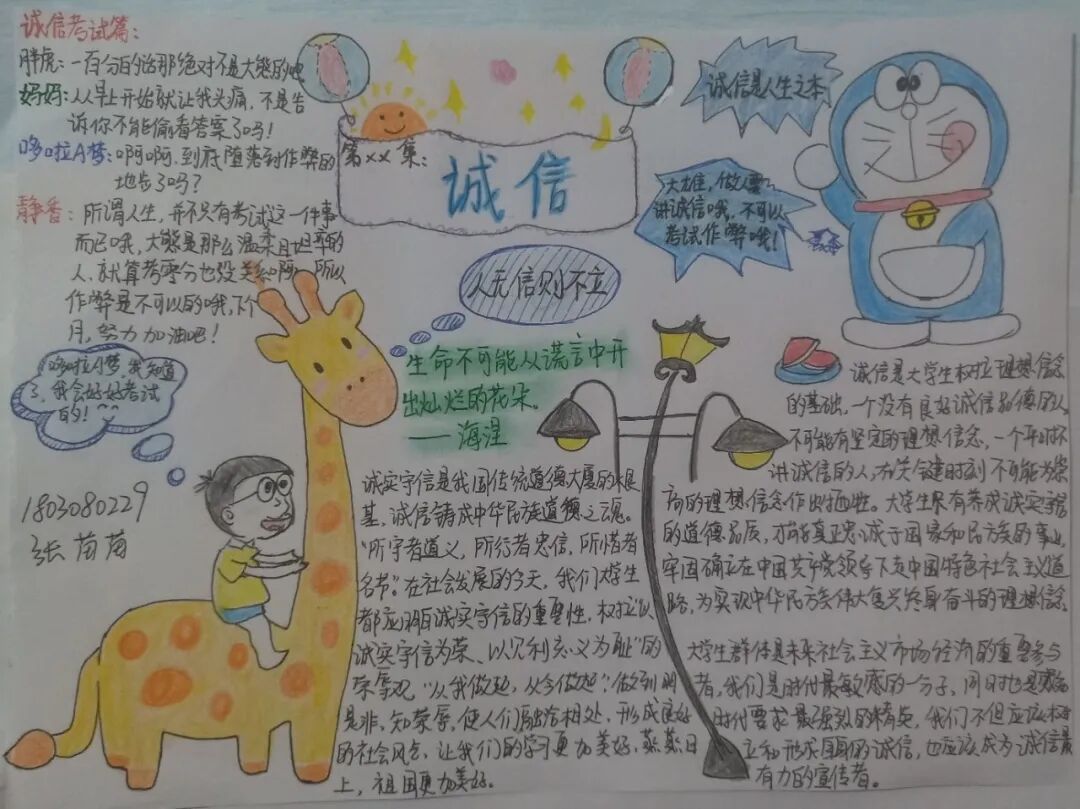 诚信考试篇：
胖虎：一百分的话那绝对不是大熊的哦
妈妈：从早上开始就让我头痛，不是告
诉你不能偷看答案了吗！
哆啦A梦：啊啊，到底堕落到作弊的
地步了吗？
静香：所谓人生，并不只有考试这一件事
而已哦，大熊是那么温柔且坦率的
人，就算考零分也没关系啊，所以
作弊是不可以的哦，下个
月，努力加油吧！
哆啦A梦，我知道
了，我会好好考试
的！
1803080229
张苗苗
第××集：
诚信
诚信是人生之本
大雄，做人要
讲诚信哦，不可以
考试作弊哦！
人无信则不立
生命不可能从谎言中开
出灿烂的花朵。
——海涅
诚实守信是我国传统道德大厦的根
基，诚信铸成中华民族道德之魂。
“所守者道义，所行者忠信，所惜者
名节”。在社会发展的今天，我们大学生
都应明白诚实守信的重要性，树立“以
诚实守信为荣、以见利忘义为耻”的
荣辱观“从我做起，从今做起”，做到明
是非，知荣辱，使人们融洽相处，形成良好
的社会风气，让我们的学习更加美好，蒸蒸日
上，祖国更加美好。
诚信是大学生树立理想信念
的基础，一个没有良好诚信品德的人，
不可能有坚定的理想信念，一个平时不
讲诚信的人，在关键时刻不可能为崇
高的理想信念作出牺牲。大学生只有养成诚实守信
的道德品质，才能真正忠诚于国家和民族的事业，
牢固确立在中国共产党领导下走中国特色社会主义道
路，为实现中华民族伟大复兴终身奋斗的理想信念。
大学生群体是未来社会主义市场经济的重要参与
者，我们是时代最敏感的一分子，同时也是
时代要求最强烈的精英，我们不但应该树
立和形成牢固的诚信，也应该成为诚信最
有力的宣传者。